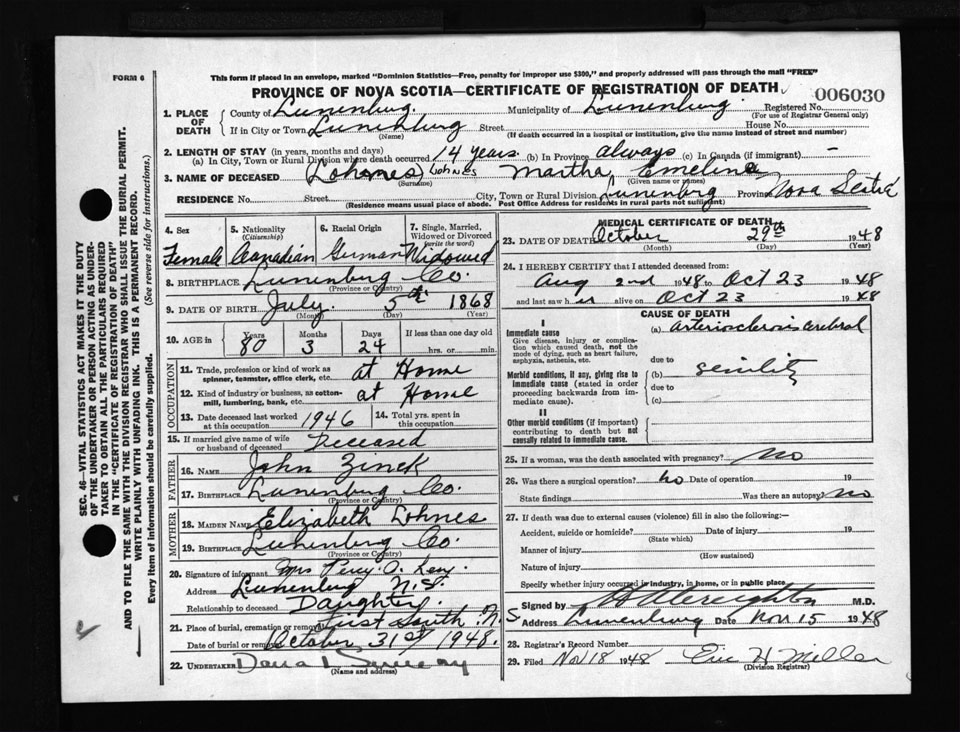 FORM 6
This form if placed in an envelope, marked "Dominion Statistics—Free, penalty for improper use $300," and properly addressed will pass through the mail "FREE"
PROVINCE OF NOVA SCOTIA—CERTIFICATE OF REGISTRATION OF DEATH
006030
1. PLACE OF DEATH
County of Lunenburg. Municipality of Lunenburg. Registered No.
(For use of Registrar General only)
If in City or Town Lunenburg Street House No.
(Name) (If death occurred in a hospital or institution, give the name instead of street and number)
2. LENGTH OF STAY (in years, months and days)
(a) In City, Town or Rural Division where death occurred 14 years. (b) In Province always (c) In Canada (if immigrant) —
3. NAME OF DECEASED (Lohones) Lohnes Martha Emeline
(Surname) (Given name or names)
RESIDENCE No. Street City, Town or Rural Division Lunenburg Province Nova Scotia
(Residence means usual place of abode. Post Office Address for residents in rural parts not sufficient)
4. Sex 5. Nationality (Citizenship) 6. Racial Origin 7. Single, Married, Widowed or Divorced (write the word)
Female Canadian German Widowed
8. BIRTHPLACE Lunenburg Co.
(Province or Country)
9. DATE OF BIRTH July 5th 1868
(Month) (Day) (Year)
10. AGE in Years Months Days If less than one day old
80 3 24 hrs. or min.
OCCUPATION
11. Trade, profession or kind of work as spinner, teamster, office clerk, etc. at Home
12. Kind of industry or business, as cotton-mill, lumbering, bank, etc. at Home
13. Date deceased last worked at this occupation 1946 14. Total yrs. spent in this occupation
15. If married give name of wife or husband of deceased Deceased
FATHER
16. Name John Zinck
17. Birthplace Lunenburg Co.
(Province or Country)
MOTHER
18. Maiden Name Elizabeth Lohnes
19. Birthplace Lunenburg Co.
(Province or Country)
20. Signature of informant Mrs Percy O. Levy.
Address Lunenburg N.S.
Relationship to deceased Daughter.
21. Place of burial, cremation or removal First South N.S
Date of burial or removal October 31st 1948.
22. UNDERTAKER
(Name and address)
MEDICAL CERTIFICATE OF DEATH
23. DATE OF DEATH October 29th 1948
(Month) (Day) (Year)
24. I HEREBY CERTIFY that I attended deceased from:
Aug 2nd 1948 to Oct 23 1948
and last saw her alive on Oct 23 1948
CAUSE OF DEATH
I
Immediate cause
Give disease, injury or complication which caused death, not the mode of dying, such as heart failure, asphyxia, asthenia, etc.
(a) arteriosclerosis cerebral
due to
Morbid conditions, if any, giving rise to immediate cause (stated in order proceeding backwards from immediate cause).
(b) senility
due to
(c)
II
Other morbid conditions (if important) contributing to death but not causally related to immediate cause.
25. If a woman, was the death associated with pregnancy? no
26. Was there a surgical operation? no Date of operation 19
State findings Was there an autopsy? no
27. If death was due to external causes (violence) fill in also the following:
Accident, suicide or homicide? Date of injury 19
(State which)
Manner of injury
(How sustained)
Nature of injury
Specify whether injury occurred in industry, in home, or in public place
Signed by Creighton M.D.
Address Lunenburg Date Nov 15 1948
28. Registrar's Record Number
29. Filed Nov 18 1948 Eric H Miller
(Division Registrar)
SEC. 46—VITAL STATISTICS ACT MAKES IT THE DUTY
OF THE UNDERTAKER OR PERSON ACTING AS UNDER-
TAKER TO OBTAIN ALL THE PARTICULARS REQUIRED
IN THE "CERTIFICATE OF REGISTRATION OF DEATH"
AND TO FILE THE SAME WITH THE DIVISION REGISTRAR WHO SHALL ISSUE THE BURIAL PERMIT.
WRITE PLAINLY WITH UNFADING INK. THIS IS A PERMANENT RECORD.
Every item of information should be carefully supplied. (See reverse side for instructions.)